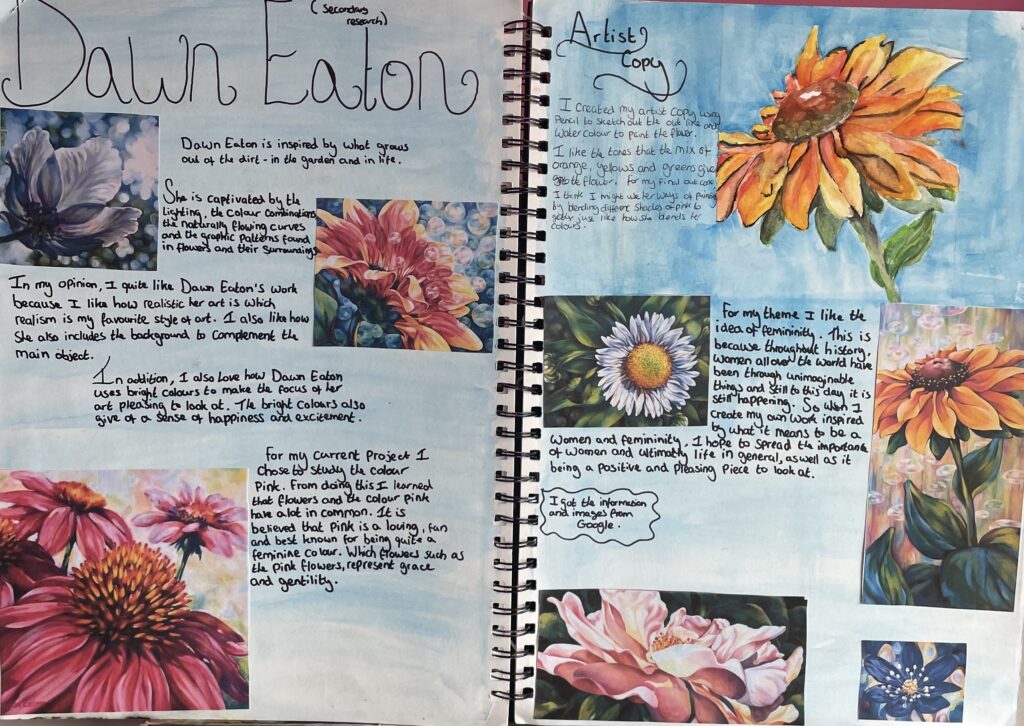 (Secondary
research)
Dawn Eaton
Dawn Eaton is inspired by what grows
out of the dirt - in the garden and in life.
She is captivated by the
lighting, the colour combinations
the naturally flowing curves
and the graphic patterns found
in flowers and their surroundings
In my opinion, I quite like Dawn Eaton's work
because I like how realistic her art is which
realism is my favourite style of art. I also like how
She also includes the background to complement the
main object.
In addition, I also love how Dawn Eaton
uses bright colours to make the focus of her
art pleasing to look at. The bright colours also
give of a sense of happiness and excitement.
For my current Project I
chose to study the colour
Pink. From doing this I learned
that flowers and the colour pink
have a lot in common. It is
believed that pink is a loving, fun
and best known for being quite a
feminine colour. Which flowers such as
the pink flowers, represent grace
and gentility.
Artist
Copy
I created my artist copy using
Pencil to sketch out the out line and
Water colour to paint the flower.
I like the tones that the mix of
orange, yellows and greens give
to the flower. For my final out come
I think I might use her ways of painting
by blending different shades of pink to
gether just like how she blends her
colours.
For my theme I like the
idea of femininity. This is
because throughout history,
women all over the world have
been through unimaginable
things and still to this day it is
still happening. So when I
create my own work inspired
by what it means to be a
women and femininity. I hope to spread the importance
of women and ultimatly life in general, as well as it
being a positive and pleasing piece to look at.
I got the information
and images from
Google.